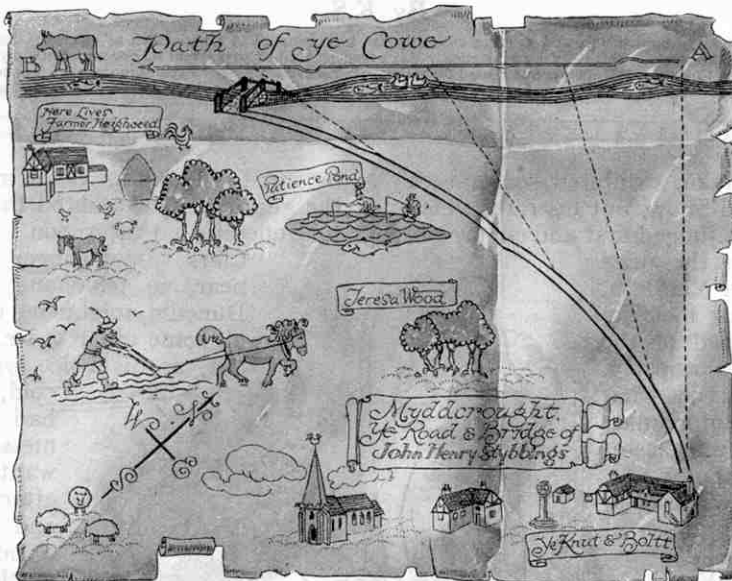 Path of ye Cowe
A
B
Here Lives
Farmer Heighoeed
Patience Pond
Teresa Wood
Myddcrought.
Ye Road & Bridge of
John Henry Stybbings
W N
S E
Ye Knut & Boltt